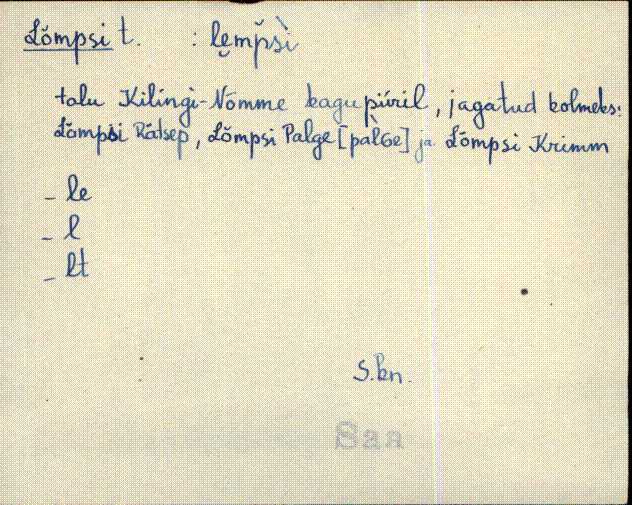 Lõmpsi t. : lȩmp̆sì
talu Kilingi-Nõmme kagupiiril, jagatud kolmeks:
Lõmpsi Rätsep, Lõmpsi Palge [pàlGe] ja Lõmpsi Krimm
- le
- l
- lt
S.kn.
Saa